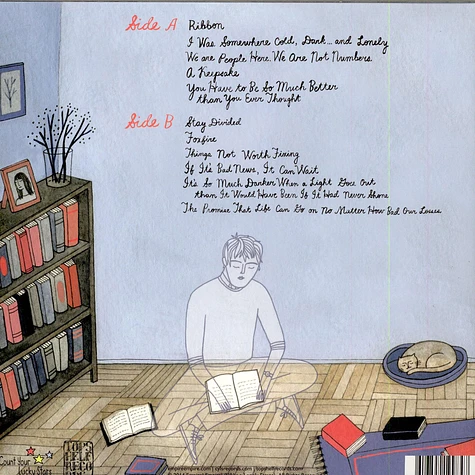 Side A Ribbon
I Was Somewhere Cold, Dark... and Lonely
We are People Here. We Are Not Numbers.
A Keepsake
You Have to Be So Much Better
than You Ever Thought
Side B Stay Divided
Foxfire
Things Not Worth Fixing
If It's Bad News, It Can Wait
It's So Much Darker When a Light Goes Out
than It Would Have Been If It Had Never Shone
The Promise That Life Can Go on No Matter How Bad Our Losses
Count Your
Lucky Stars
TOPS
HELF
RECO
RDS
empireempire.com | cylsrecords.com | topshelfrecords.com